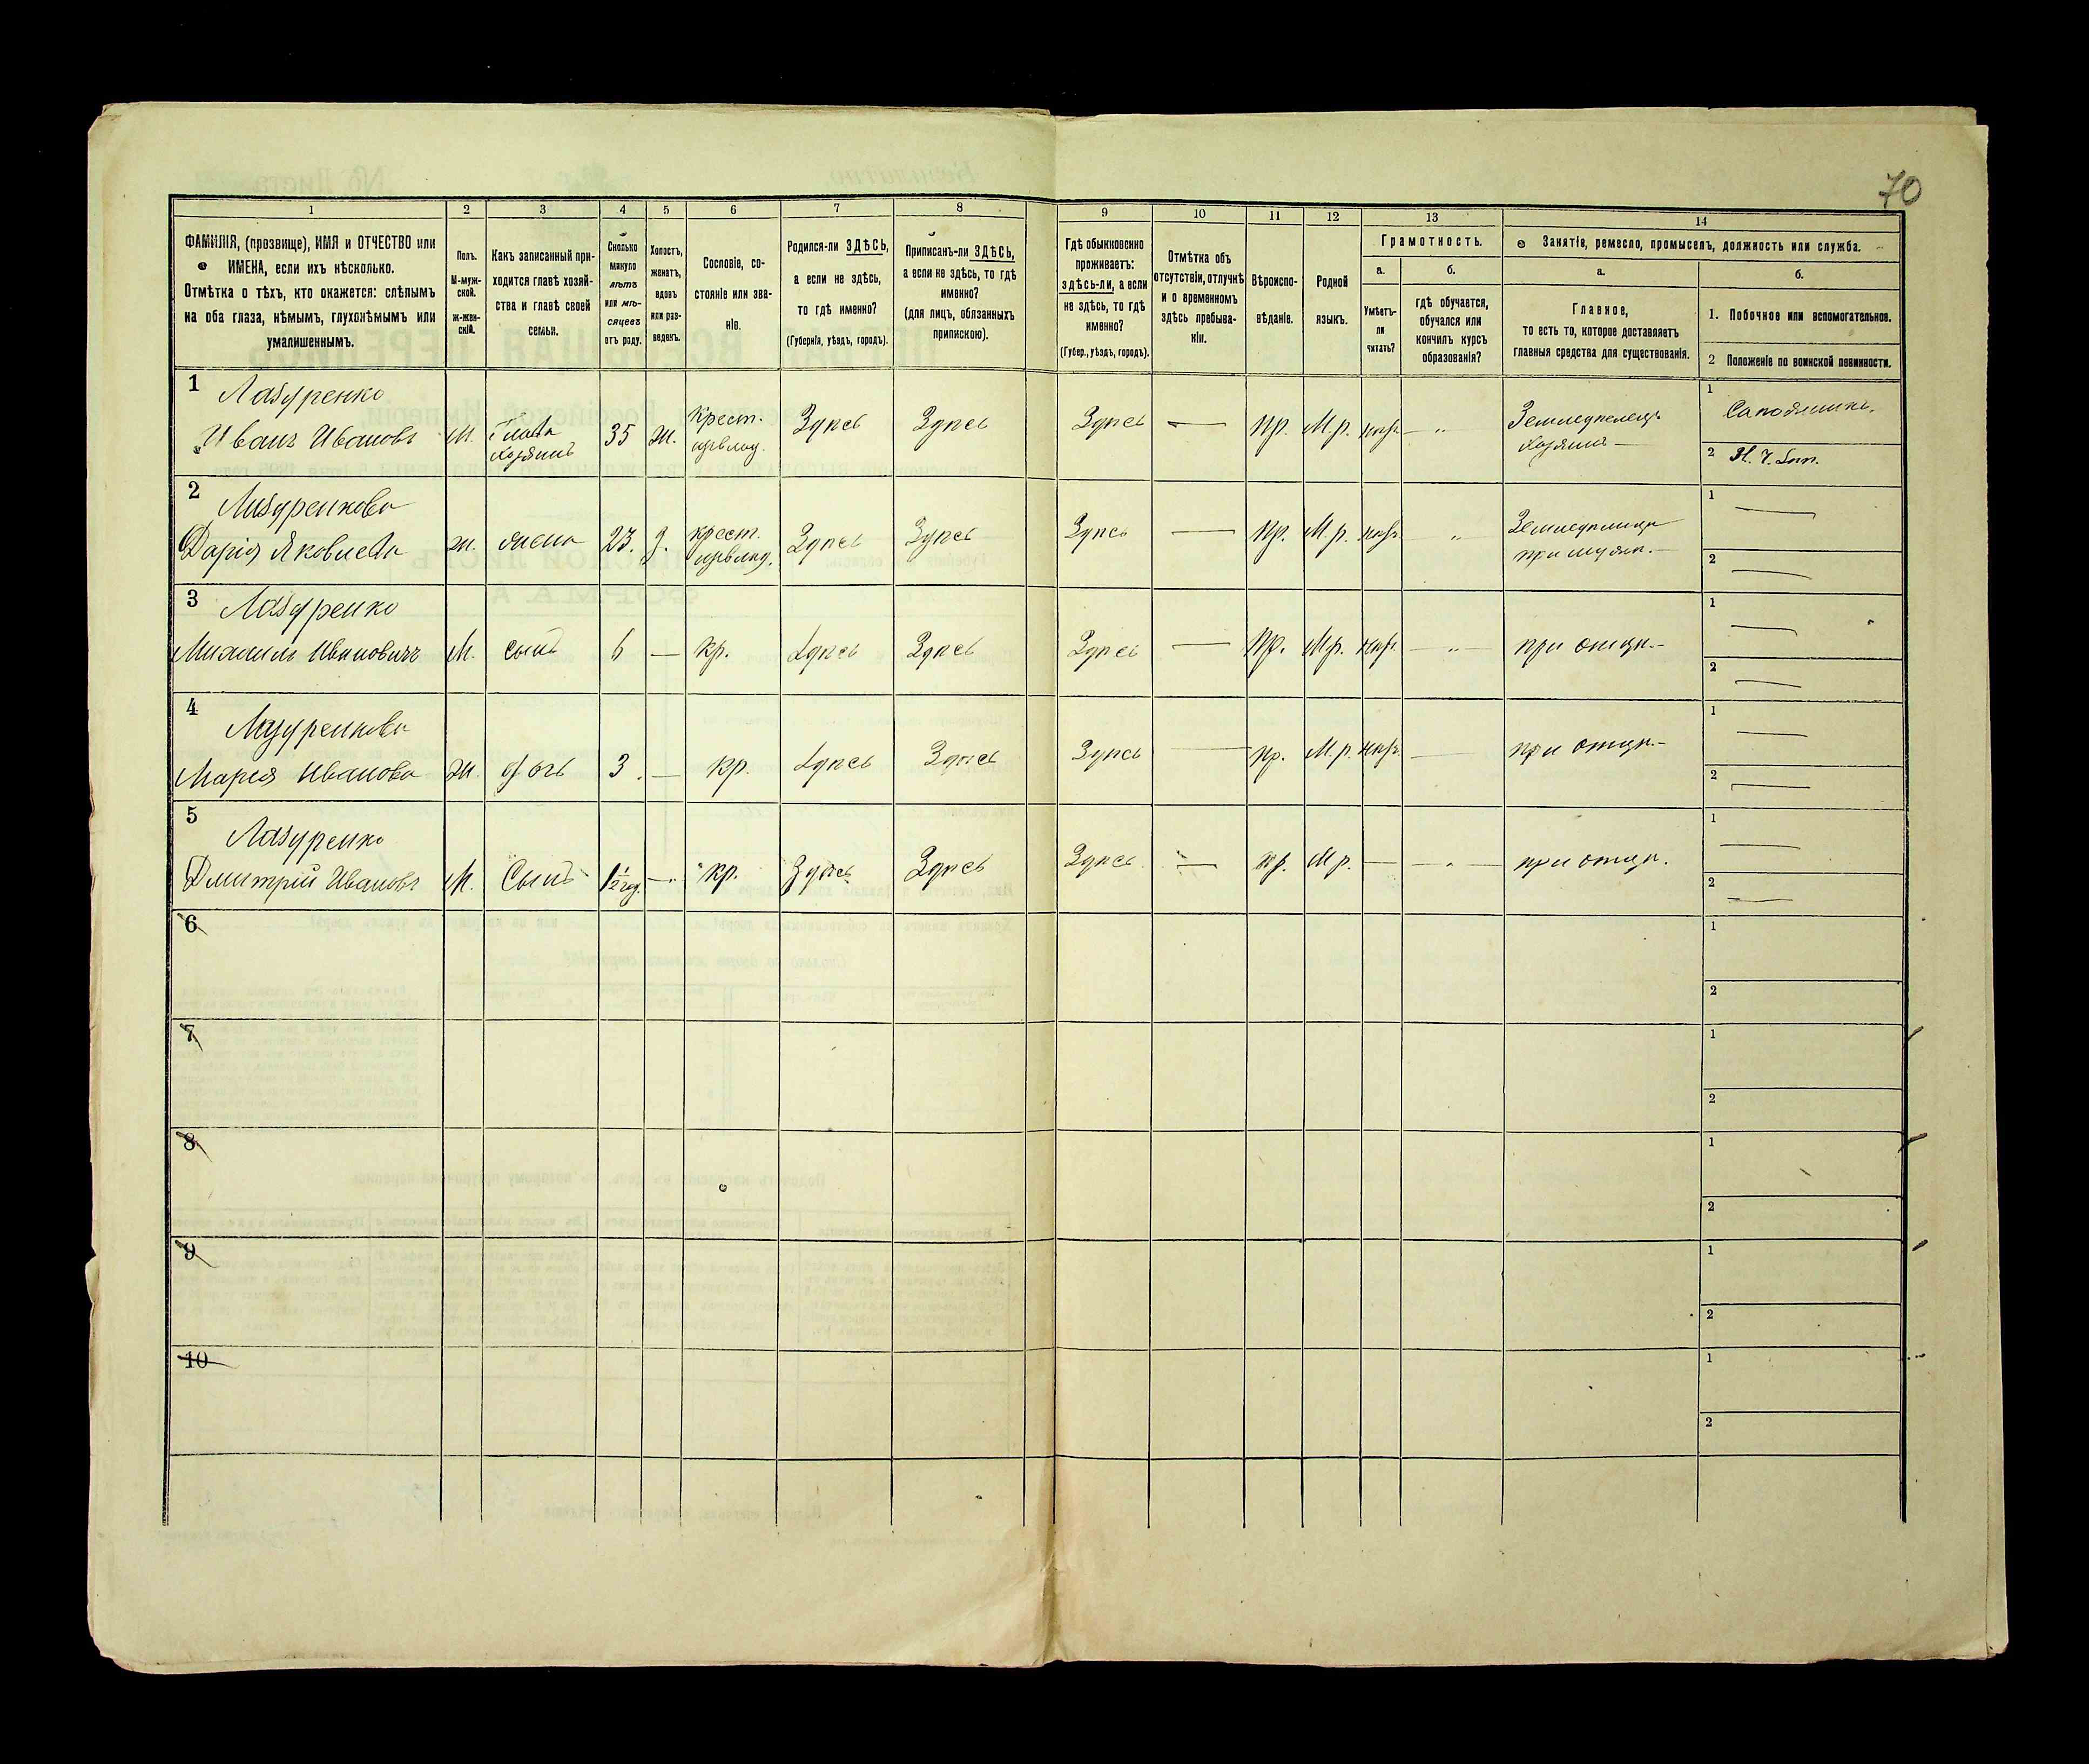 70
1
2
3
4
5
6
7
8
9
10
11
12
13
14
ФАМИЛІЯ, (прозвище), ИМЯ и ОТЧЕСТВО или
ИМЕНА, если ихъ нѣсколько.
Отмѣтка о тѣхъ, кто окажется: слѣпымъ
на оба глаза, нѣмымъ, глухонѣмымъ или
умалишеннымъ.
Полъ.
М-муж-
ской.
Ж-жен-
скій.
Какъ записанный при-
ходится главѣ хозяй-
ства и главѣ своей
семьи.
Сколько
минуло
лѣтъ
или мѣ-
сяцевъ
отъ роду.
Холостъ,
женатъ,
вдовъ
или раз-
веденъ.
Сословіе, со-
стояніе или зва-
ніе.
Родился-ли ЗДѢСЬ,
а если не здѣсь,
то гдѣ именно?
(Губернія, уѣздъ, городъ).
Приписанъ-ли ЗДѢСЬ,
а если не здѣсь, то гдѣ
именно?
(для лицъ, обязанныхъ
припискою).
Гдѣ обыкновенно
проживаетъ:
здѣсь-ли, а если
не здѣсь, то гдѣ
именно?
(Губер., уѣздъ, городъ).
Отмѣтка объ
отсутствіи, отлучкѣ
и о временномъ
здѣсь пребыва-
ніи.
Вѣроиспо-
вѣданіе.
Родной
языкъ.
Грамотность.
а.
Умѣетъ-
ли
читать?
б.
гдѣ обучается,
обучался или
кончилъ курсъ
образованія?
Занятіе, ремесло, промыселъ, должность или служба.
а.
Главное,
то есть то, которое доставляетъ
главныя средства для существованія.
б.
1. Побочное или вспомогательное.
2 Положеніе по воинской повинности.
1 Лазуренко
Иванъ Ивановъ М. Глава хозяинъ 35 ж. крест. Здѣсь Здѣсь Здѣсь — пр. М.р. — „ Земледѣлецъ хозяинъ —
1
2
2 Лазуренкова
Дарія Яковлева ж. жена 23. крест. Здѣсь Здѣсь Здѣсь — пр. М.р. „ при мужѣ. —
1 —
2 —
3 Лазуренко
Михаилъ Ивановичъ М. сынъ 6 — кр. Здѣсь Здѣсь Здѣсь — пр. М.р. — „ — при отцѣ. —
1 —
2 —
4 Лазуренкова
Марія Иванова ж. дочь 3. — кр. Здѣсь Здѣсь Здѣсь — пр. М.р. — при отцѣ. —
1 —
2 —
5 Лазуренко
Дмитрій Ивановъ М. Сынъ 1 1/2 год. — „ кр. Здѣсь Здѣсь Здѣсь — пр. М.р. — — „ — при отцѣ.
1 —
2 —
6
1
2
7
1
2
8
1
2
9
1
2
10
1
2